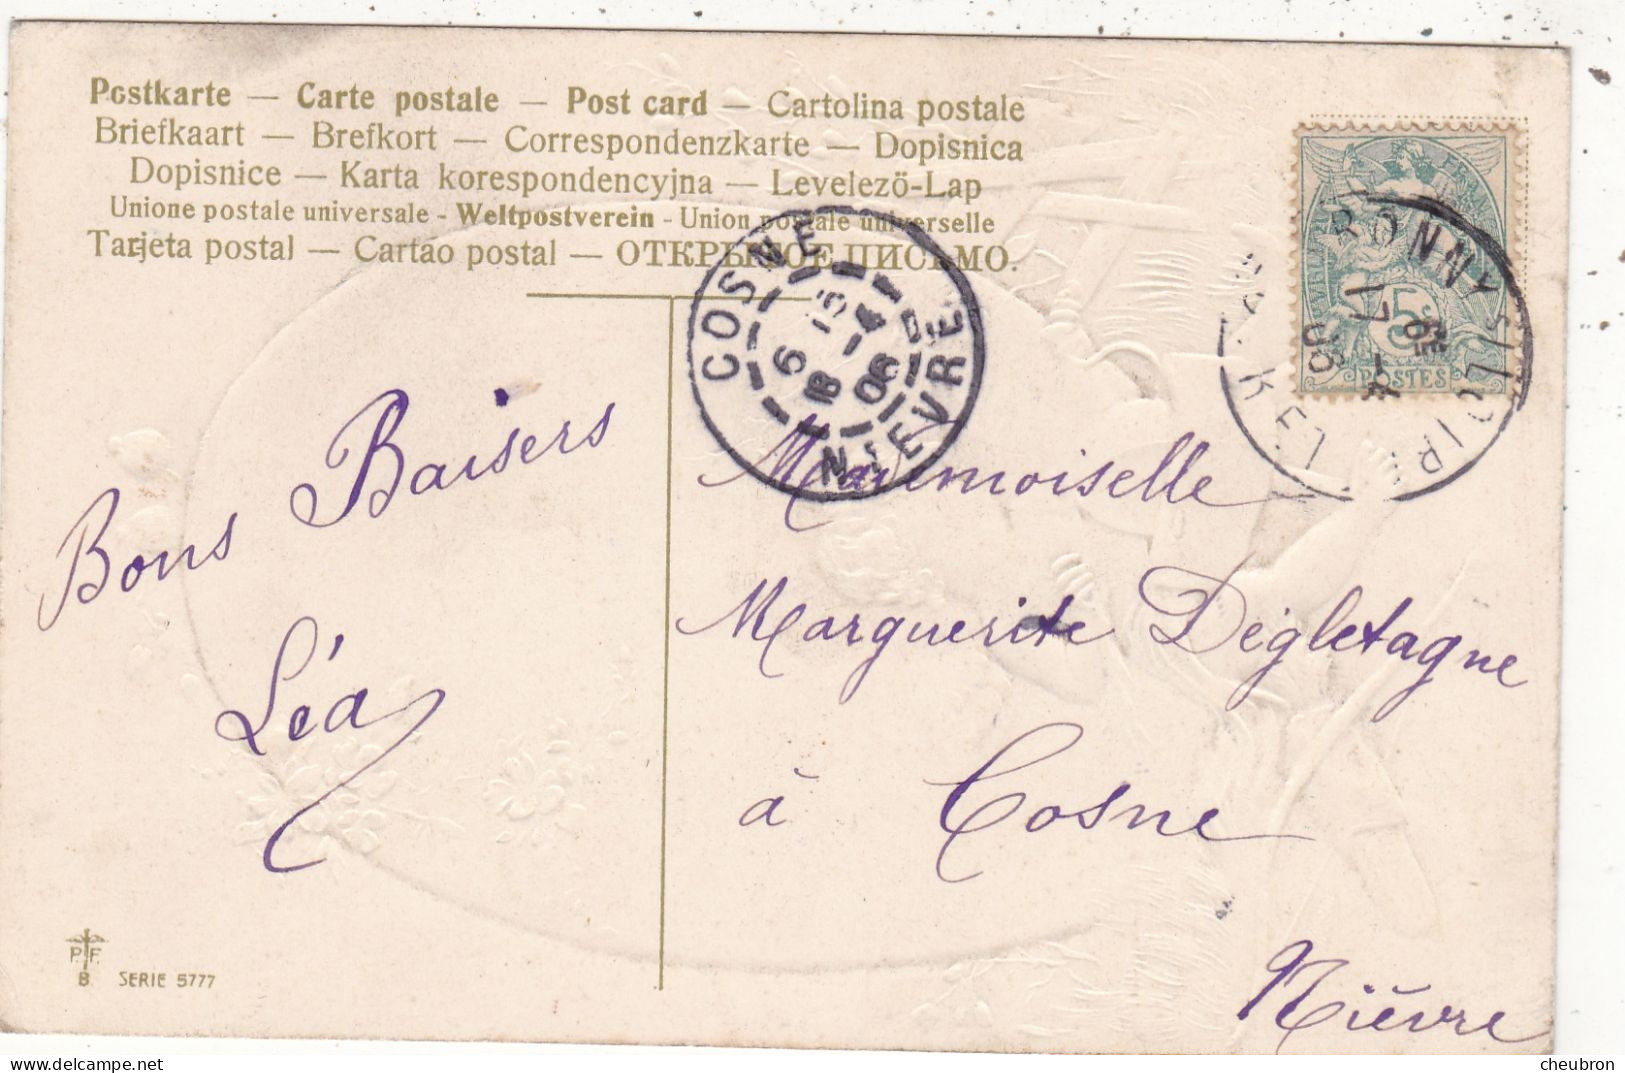 Postkarte — Carte postale — Post card — Cartolina postale
Briefkaart — Brefkort — Correspondenzkarte — Dopisnica
Dopisnice — Karta korespondencyjna — Levelezö-Lap
Unione postale universale - Weltpostverein - Union postale universelle
Tarjeta postal — Cartão postal — ОТКРЫТОЕ ПИСЬМО.
COSNE
6
18 -4
06
NIÈVRE
BONNY S/LOIRE
17 -4
06
LOIRET
5
POSTES
Bons Baisers
Léa
Mademoiselle
Marguerite Degletagne
à Cosne
Nièvre
P. F.
B SERIE 5777
delcampe.net
cheubron